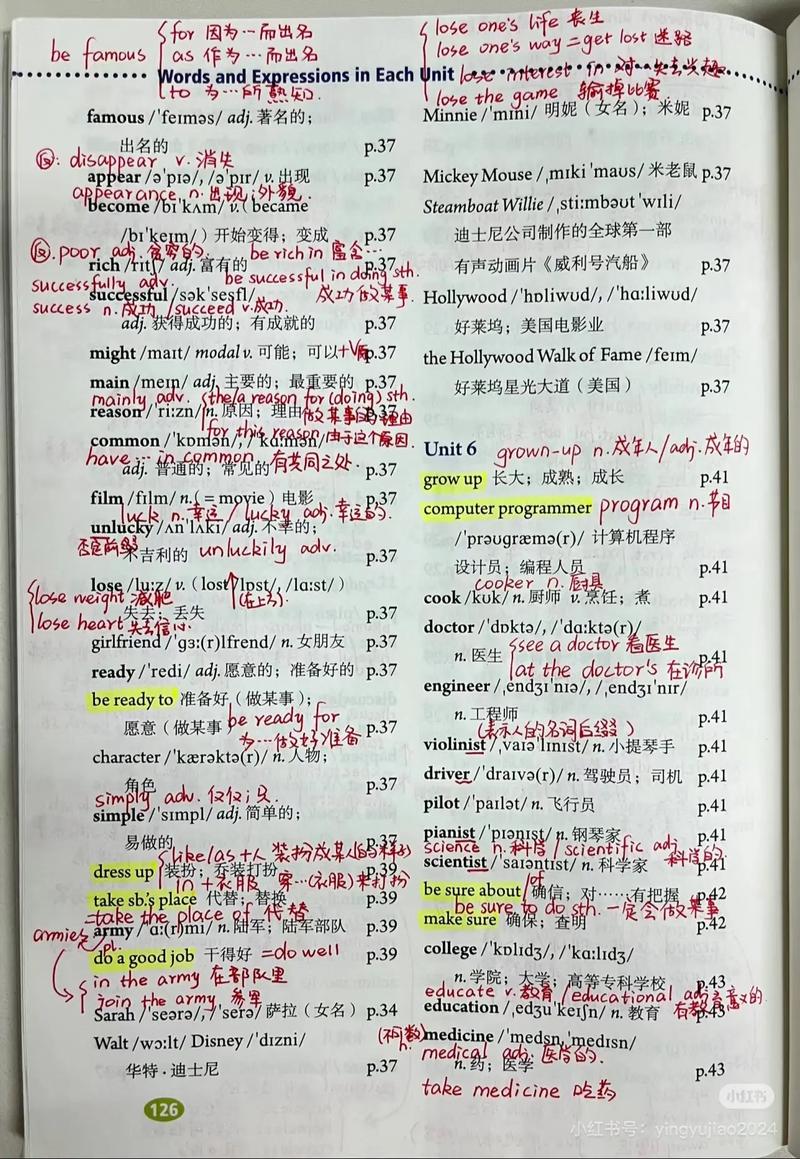 be famous
for 因为…而出名
as 作为…而出名
to 为…所熟知.
lose one's life 丧生
lose one's way = get lost 迷路
lose interest in 对…失去兴趣
lose the game 输掉比赛
Words and Expressions in Each Unit
famous /ˈfeɪməs/ adj. 著名的；
出名的 p.37
反: disappear v. 消失
appear /əˈpɪə/, /əˈpɪr/ v. 出现 p.37
appearance n. 出现；外貌.
become /bɪˈkʌm/ v. ( became
/bɪˈkeɪm/ ) 开始变得；变成 p.37
反. poor adj. 贫穷的. be rich in 富含…
rich /rɪtʃ/ adj. 富有的 p.37
successfully adv. be successful in doing sth.
successful /səkˈsesfl/ 成功做某事.
success n. 成功 / succeed v. 成功.
adj. 获得成功的；有成就的 p.37
might /maɪt/ modal v. 可能；可以 +V原 p.37
main /meɪn/ adj. 主要的；最重要的 p.37
mainly adv. the/a reason for (doing) sth.
reason /ˈriːzn/ n. 原因；理由 做某事的理由
for this reason 由于这个原因.
common /ˈkɒmən/, /ˈkɑːmən/
have … in common 有共同之处.
adj. 普通的；常见的 p.37
film /fɪlm/ n. ( = movie ) 电影 p.37
luck n. 幸运 / lucky adj. 幸运的.
unlucky /ʌnˈlʌki/ adj. 不幸的；
否定前缀
不吉利的 unluckily adv. p.37
lose /luːz/ v. ( lost /lɒst/, /lɑːst/ )
lose weight 减肥 (右上方).
失去；丢失 p.37
lose heart 失去信心
girlfriend /ˈɡɜː(r)lfrend/ n. 女朋友 p.37
ready /ˈredi/ adj. 愿意的；准备好的 p.37
be ready to 准备好（做某事）；
愿意（做某事） p.37
be ready for
为…做好准备
character /ˈkærəktə(r)/ n. 人物；
角色 p.37
simply adv. 仅仅；只.
simple /ˈsɪmpl/ adj. 简单的；
易做的 p.37
like/as + 人 装扮成某人的样子
dress up 装扮；乔装打扮 p.39
in + 衣服 穿…(衣服)来打扮
take sb.'s place 代替；替换 p.39
= take the place of 代替
army /ˈɑː(r)mi/ n. 陆军；陆军部队 p.39
armies pl.
do a good job 干得好 = do well p.39
in the army 在部队里
join the army. 参军
Sarah /ˈseərə/, /ˈserə/ 萨拉（女名） p.34
Walt /wɔːlt/ Disney /ˈdɪzni/
华特·迪士尼 p.37
126
Minnie /ˈmɪni/ 明妮（女名）；米妮 p.37
Mickey Mouse /ˌmɪki ˈmaʊs/ 米老鼠 p.37
Steamboat Willie /ˌstiːmbəʊt ˈwɪli/
迪士尼公司制作的全球第一部
有声动画片《威利号汽船》 p.37
Hollywood /ˈhɒliwʊd/, /ˈhɑːliwʊd/
好莱坞；美国电影业 p.37
the Hollywood Walk of Fame /feɪm/
好莱坞星光大道（美国） p.37
Unit 6
grown-up n. 成年人 / adj. 成年的
grow up 长大；成熟；成长 p.41
computer programmer program n. 节目
/ˈprəʊɡræmə(r)/ 计算机程序
设计员；编程人员 p.41
cooker n. 厨具
cook /kʊk/ n. 厨师 v. 烹饪；煮 p.41
doctor /ˈdɒktə/, /ˈdɑːktə(r)/
see a doctor 看医生
n. 医生 p.41
at the doctor's 在诊所
engineer /ˌendʒɪˈnɪə/, /ˌendʒɪˈnɪr/
n. 工程师 p.41
(表示人的名词后缀)
violinist /ˌvaɪəˈlɪnɪst/ n. 小提琴手 p.41
driver /ˈdraɪvə(r)/ n. 驾驶员；司机 p.41
pilot /ˈpaɪlət/ n. 飞行员 p.41
pianist /ˈpɪənɪst/ n. 钢琴家 p.41
science n. 科学 / scientific adj. 科学的.
scientist /ˈsaɪəntɪst/ n. 科学家 p.41
be sure about 确信；对……有把握 p.42
/of
be sure to do sth. 一定会做某事
make sure 确保；查明 p.42
college /ˈkɒlɪdʒ/, /ˈkɑːlɪdʒ/
n. 学院；大学；高等专科学校 p.43
educate v. 教育 / educational adj. 有教育意义的.
education /ˌedʒuˈkeɪʃn/ n. 教育 p.43
(不可数)
medicine /ˈmedsn, ˈmedɪsn/
medical adj. 医学的.
n. 药；医学 p.43
take medicine 吃药
小红书
小红书号：yingyujiao2024